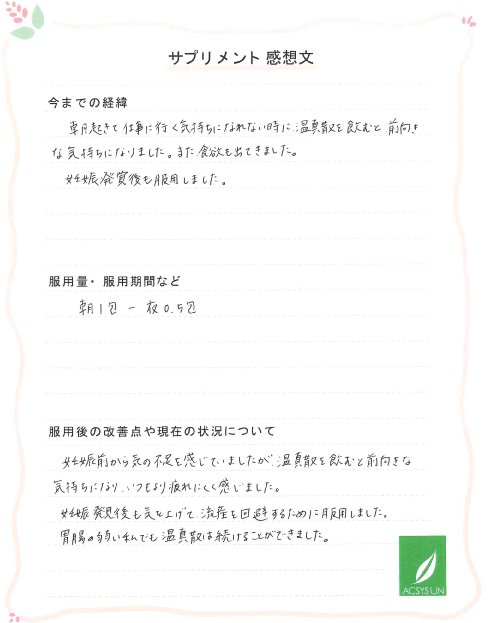 サプリメント 感想文
今までの経緯
朝起きて仕事に行く気持ちになれない時に、温真散を飲むと 前向き
な気持ちになりました。また食欲も出てきました。
妊娠発覚後も服用しました。
服用量・服用期間など
朝1包 － 夜0.5包
服用後の改善点や現在の状況について
妊娠前から気の不足を感じていましたが、温真散を飲むと前向きな
気持ちになり、いつもより疲れにくく感じました。
妊娠発覚後も気を上げて、流産を回避するために服用しました。
胃腸の弱い私でも温真散は続けることができました。
ACSYSUN